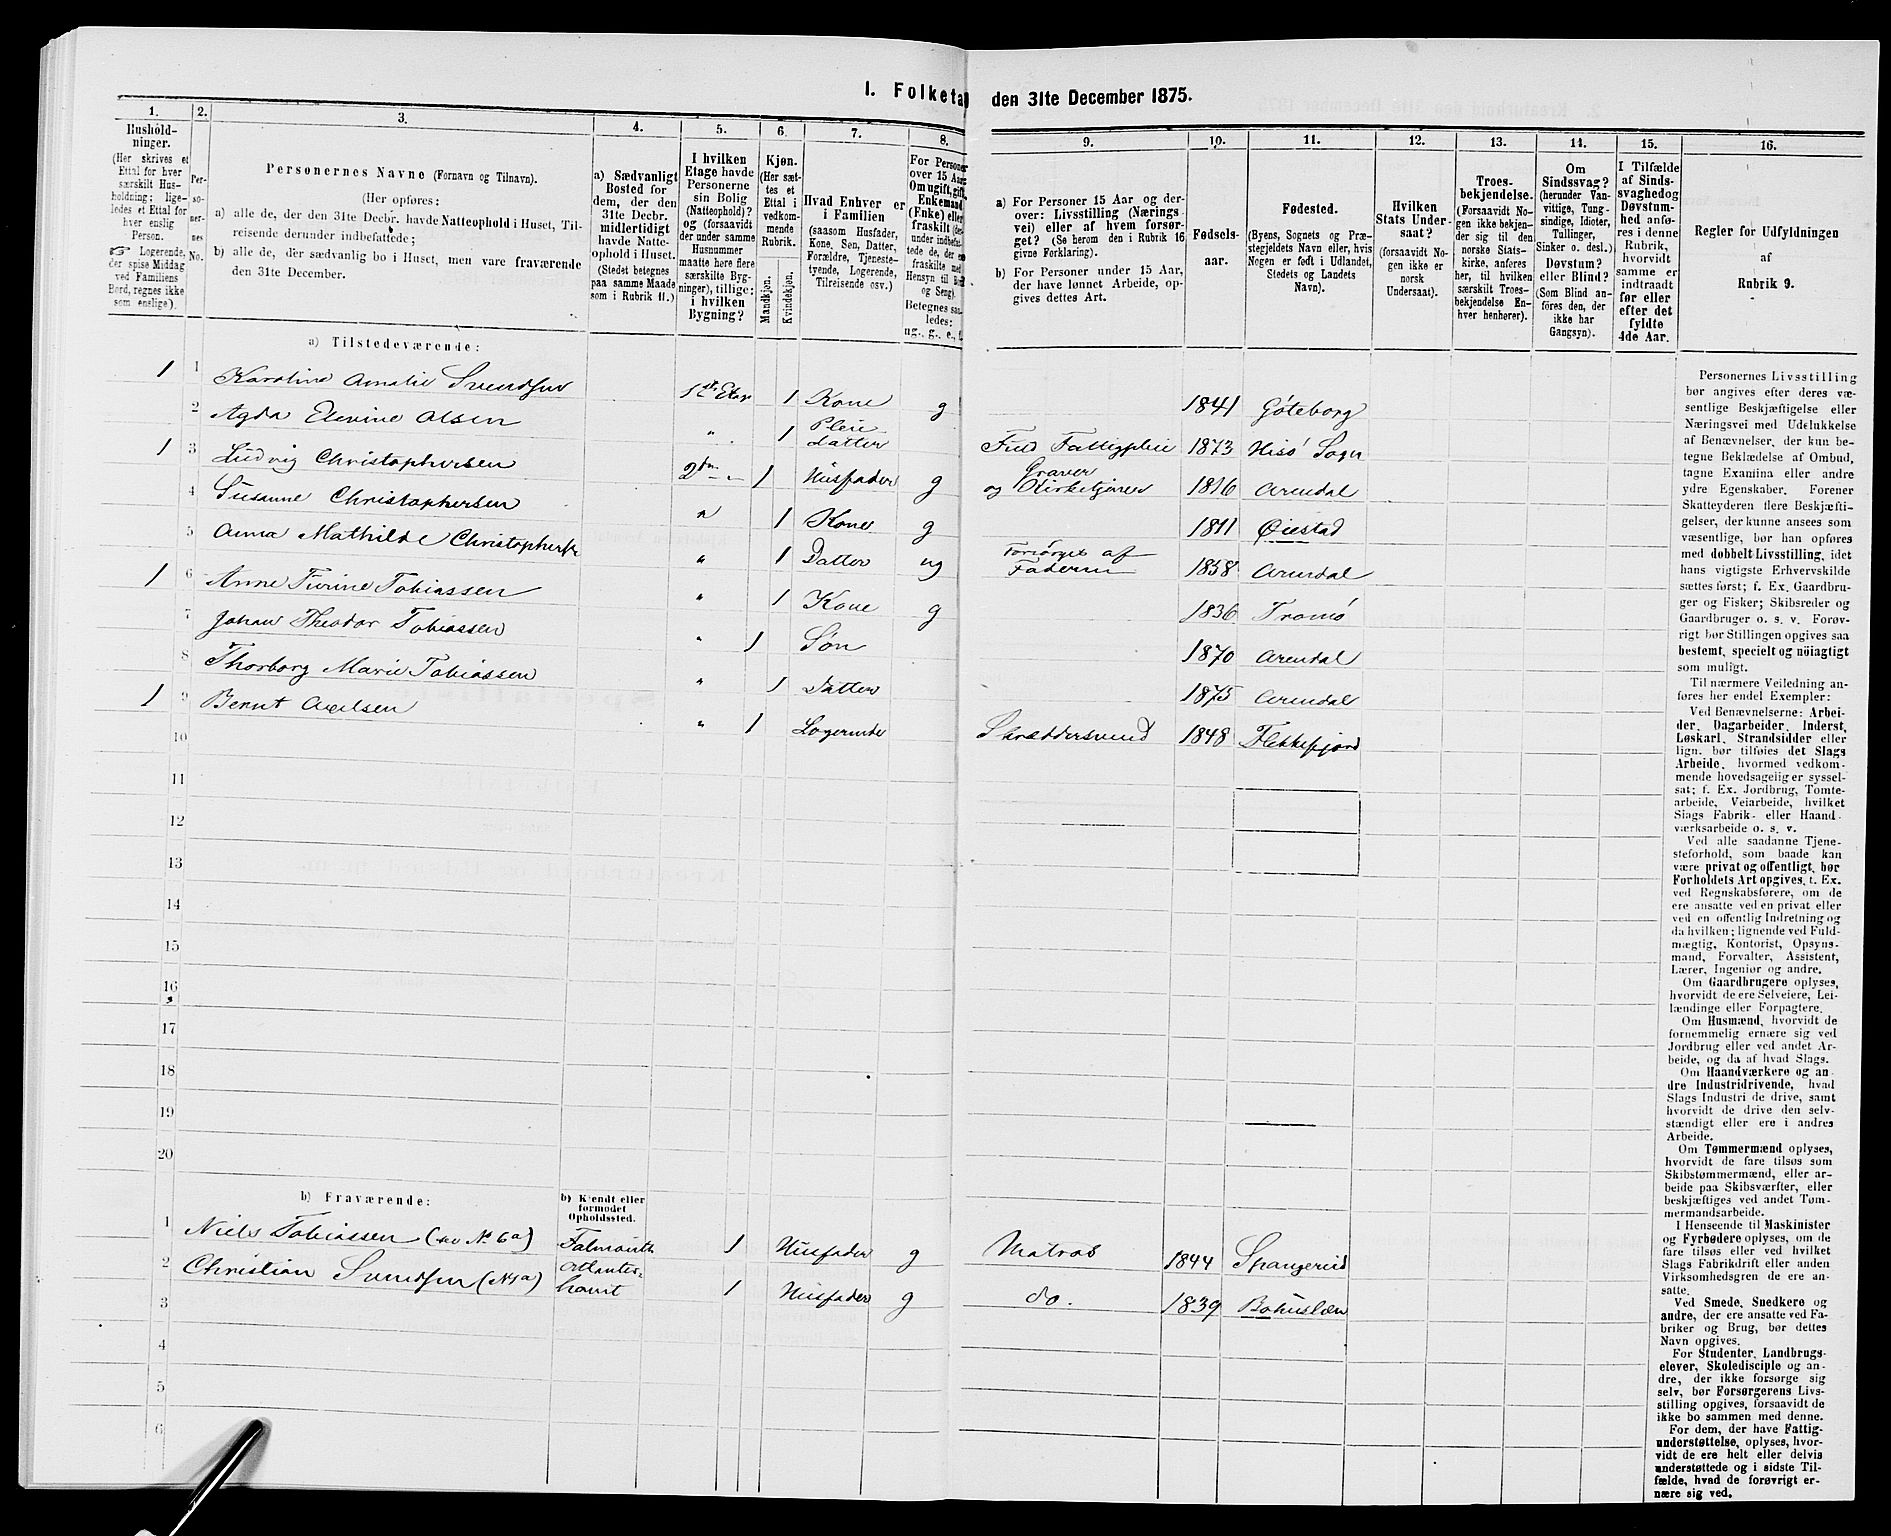 I. Folketal den 31te December 1875.
1. 2. 3. 4. 5. 6. 7. 8. 9. 10. 11. 12. 13. 14. 15. 16.
Hushold-
ninger.
(Her skrives et
Ettal for hver
særskilt Hus-
holdning; lige-
ledes et Ettal for
hver enslig
Person.
☞ Logerende,
der spise Middag
ved Familiens
Bord, regnes ikke
som enslige).
Per-
so-
ner-
nes
No.
Personernes Navne (Fornavn og Tilnavn).
(Her opføres:
a) alle de, der den 31te Decbr. havde Natteophold i Huset, Til-
reisende derunder indbefattede;
b) alle de, der sædvanlig bo i Huset, men vare fraværende
den 31te December.
a) Sædvanligt
Bosted for
dem, der den
31te Decbr.
midlertidigt
havde Natte-
ophold i Huset.
(Stedet betegnes
paa samme Maade
som i Rubrik 11.)
I hvilken
Etage havde
Personerne
sin Bolig
(Natteophold)?
og (forsaavidt
der under samme
Husnummer
maatte høre flere
særskilte Byg-
ninger), tillige:
i hvilken
Bygning?
Kjøn.
(Her sæt-
tes et
Ettal i
vedkom-
mende
Rubrik.)
Mandkjøn.
Kvindekjøn.
Hvad Enhver er
i Familien
(saasom Husfader,
Kone, Søn, Datter,
Forældre, Tjeneste-
tyende, Logerende,
Tilreisende osv.)
For Personer
over 15 Aar:
Om ugift, gift,
Enkemand
(Enke) eller
fraskilt (der-
under indbefat-
tede de, der ere
fraskilte med
Hensyn til Bord
og Seng).
Betegnes saa-
ledes:
ug., g., e., f.
a) For Personer 15 Aar og der-
over: Livsstilling (Nærings-
vei) eller af hvem forsør-
get? (Se herom den i Rubrik 16
givne Forklaring).
b) For Personer under 15 Aar,
der have lønnet Arbeide, op-
gives dettes Art.
Fødsels-
aar.
Fødested.
(Byens, Sognets og Præ-
stegjeldets Navn eller, hvis
Nogen er født i Udlandet,
Stedets og Landets
Navn).
Hvilken
Stats Under-
saat?
(forsaavidt No-
gen ikke er
norsk
Undersaat).
Troes-
bekjendelse.
(Forsaavidt No-
gen ikke bekjen-
der sig til den
norske Stats-
kirke, anføres
her, til hvilken
særskilt Troes-
bekjendelse En-
hver henhører).
Om
Sindssvag?
(herunder Van-
vittige, Tung-
sindige, Idioter,
Tullinger,
Sinker o. desl.)
Døvstum?
eller Blind?
(Som Blind an-
føres den, der
ikke har
Gangsyn).
I Tilfælde
af Sinds-
svaghed og
Døvstum-
hed anfø-
res i denne
Rubrik,
hvorvidt
samme er
indtraadt
før eller
efter det
fyldte
4de Aar.
Regler for Udfyldningen
af
Rubrik 9.
a) Tilstedeværende:
1 1 Karoline Amalie Svendsen 1ste Etar 1 Kone g 1841 Göteborg
2 Agda Elevine Olsen " 1 Pleie datter Fuld Fattigpleie 1873 Hisø Sogn
1 3 Ludvig Christophersen 2den " 1 Husfader g Graver og Kirketjener 1816 Arendal
4 Susanne Christophersen " 1 Kone g 1811 Øiestad
5 Anna Mathilde Christophersen " 1 Datter ug Forsørges af Faderen 1858 Arendal
1 6 Anne Turine Tobiassen " 1 Kone g 1836 Tromø
7 Johan Theodor Tobiassen " 1 Søn 1870 Arendal
8 Thorborg Marie Tobiassen " 1 Datter 1875 Arendal
1 9 Bernt Axelsen " 1 Logerende Skræddersvend 1848 Flekkefjord
10
11
12
13
14
15
16
17
18
19
20
b) Fraværende:
b) Kjendt eller
formodet
Opholdssted.
1 Niels Tobiassen (se No 6a) Falmouth 1 Husfader g Matros 1844 Spangereid
2 Christian Svendsen (N1a) Atlanter-
havet 1 Husfader g do. 1839 Bohuslen
3
4
5
6
Personernes Livsstilling
bør angives efter deres væ-
sentlige Beskjæftigelse eller
Næringsvei med Udelukkelse
af Benævnelser, der kun be-
tegne Beklædelse af Ombud,
tagne Examina eller andre
ydre Egenskaber. Forener
Skatteyderen flere Beskjæfti-
gelser, der kunne ansees som
væsentlige, bør han opføres
med dobbelt Livsstilling, idet
hans vigtigste Erhvervskilde
sættes først; f. Ex. Gaardbru-
ger og Fisker; Skibsreder og
Gaardbruger o. s. v. Forøv-
rigt bør Stillingen opgives saa
bestemt, specielt og nøiagtigt
som muligt.
Til nærmere Veiledning an-
føres her endel Exempler:
Ved Benævnelserne: Arbei-
der, Dagarbeider, Inderst,
Løskarl, Strandsidder eller
lign. bør tilføies det Slags
Arbeide, hvormed vedkom-
mende hovedsagelig er syssel-
sat; f. Ex. Jordbrug, Tomte-
arbeide, Veiarbeide, hvilket
Slags Fabrik- eller Haand-
værksarbeide o. s. v.
Ved alle saadanne Tjene-
steforhold, som baade kan
være privat og offentligt, bør
Forholdets Art opgives, t. Ex.
ved Regnskabsførere, om de
ere ansatte ved en privat eller
ved en offentlig Indretning og
da hvilken; lignende ved Fuld-
mægtig, Kontorist, Opsyns-
mand, Forvalter, Assistent,
Lærer, Ingeniør og andre.
Om Gaardbrugere oplyses,
hvorvidt de ere Selveiere, Lei-
lændinge eller Forpagtere.
Om Husmænd, hvorvidt de
fornemmelig ernære sig ved
Jordbrug eller ved andet Ar-
beide, og da af hvad Slags.
Om Haandværkere og an-
dre Industridrivende, hvad
Slags Industri de drive, samt
hvorvidt de drive den selv-
stændigt eller ere i andres
Arbeide.
Om Tømmermænd oplyses,
hvorvidt de fare tilsøs som
Skibstømmermænd, eller ar-
beide paa Skibsværfter, eller
beskjæftiges ved andet Tøm-
mermandsarbeide.
I Henseende til Maskinister
og Fyrbødere oplyses, om de
fare tilsøs eller ved hvilket
Slags Fabrikdrift eller anden
Virksomhedsgren de ere an-
satte.
Ved Smede, Snedkere og
andre, der ere ansatte ved Fa-
briker og Brug, bør dettes
Navn opgives.
For Studenter, Landbrugs-
elever, Skoledisciple og an-
dre, der ikke forsørge sig
selv, bør Forsørgerens Livs-
stilling opgives, forsaavidt de
ikke bo sammen med denne.
For dem, der have Fattig-
understøttelse, oplyses, hvor-
vidt de ere helt eller delvis
understøttede og i sidste Til-
fælde, hvad de forøvrigt er-
nære sig ved.